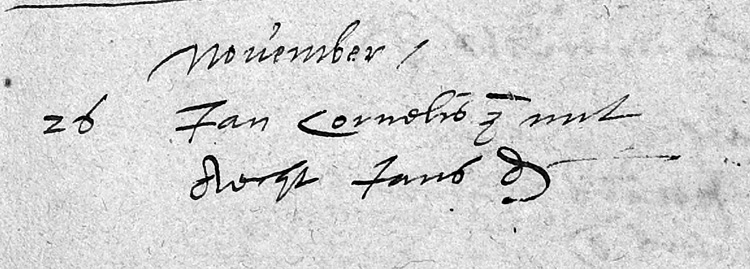 November /
26 Jan Cornelis z met
Jans d